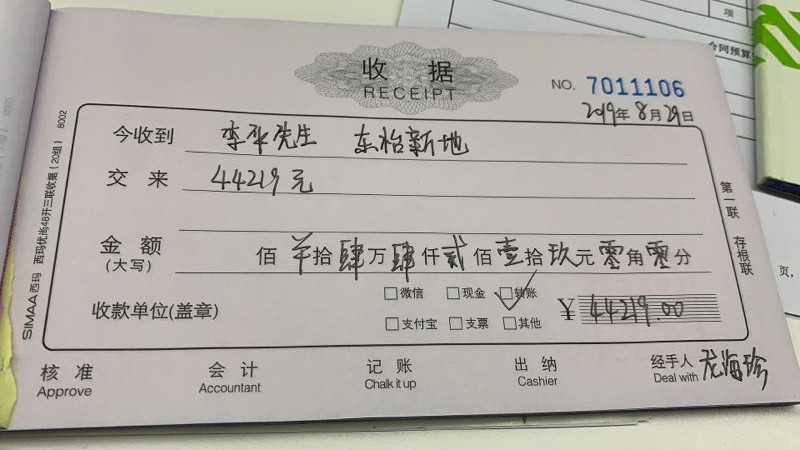 收 据
RECEIPT
NO. 7011106
2019年8月29日
今收到 李平先生 东怡新地
交来 44219元
金额 佰¥拾肆万肆仟贰佰壹拾玖元零角零分
(大写)
□微信 □现金 □转账
收款单位(盖章) ¥ 44219.00
□支付宝 □支票 □其他
核准 会计 记账 出纳 经手人 龙海珍
Approve Accountant Chalk it up Cashier Deal with
SIMAA西玛 西玛优尚48开三联收据(20组) 8002
第一联 存根联
项
合同预算
页,